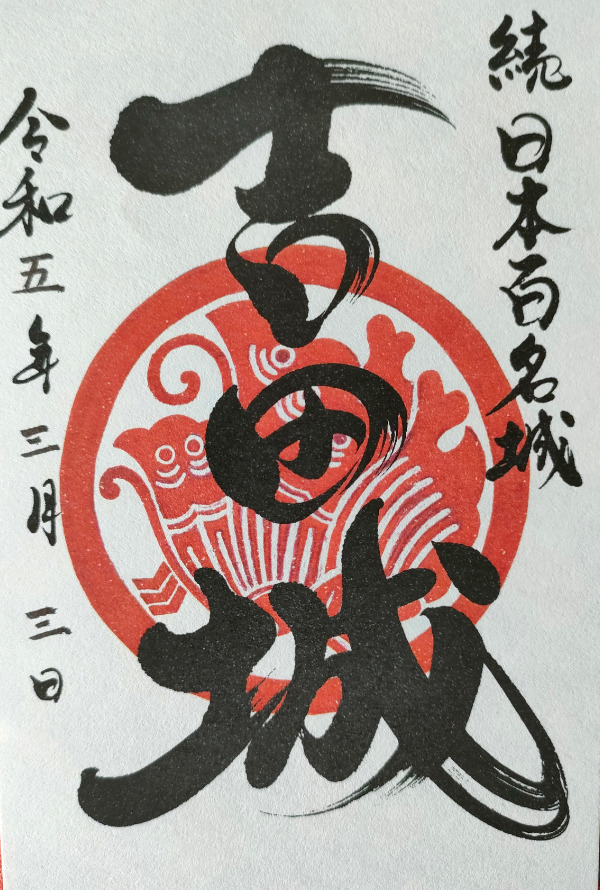 続日本百名城
吉田城
令和五年三月三日